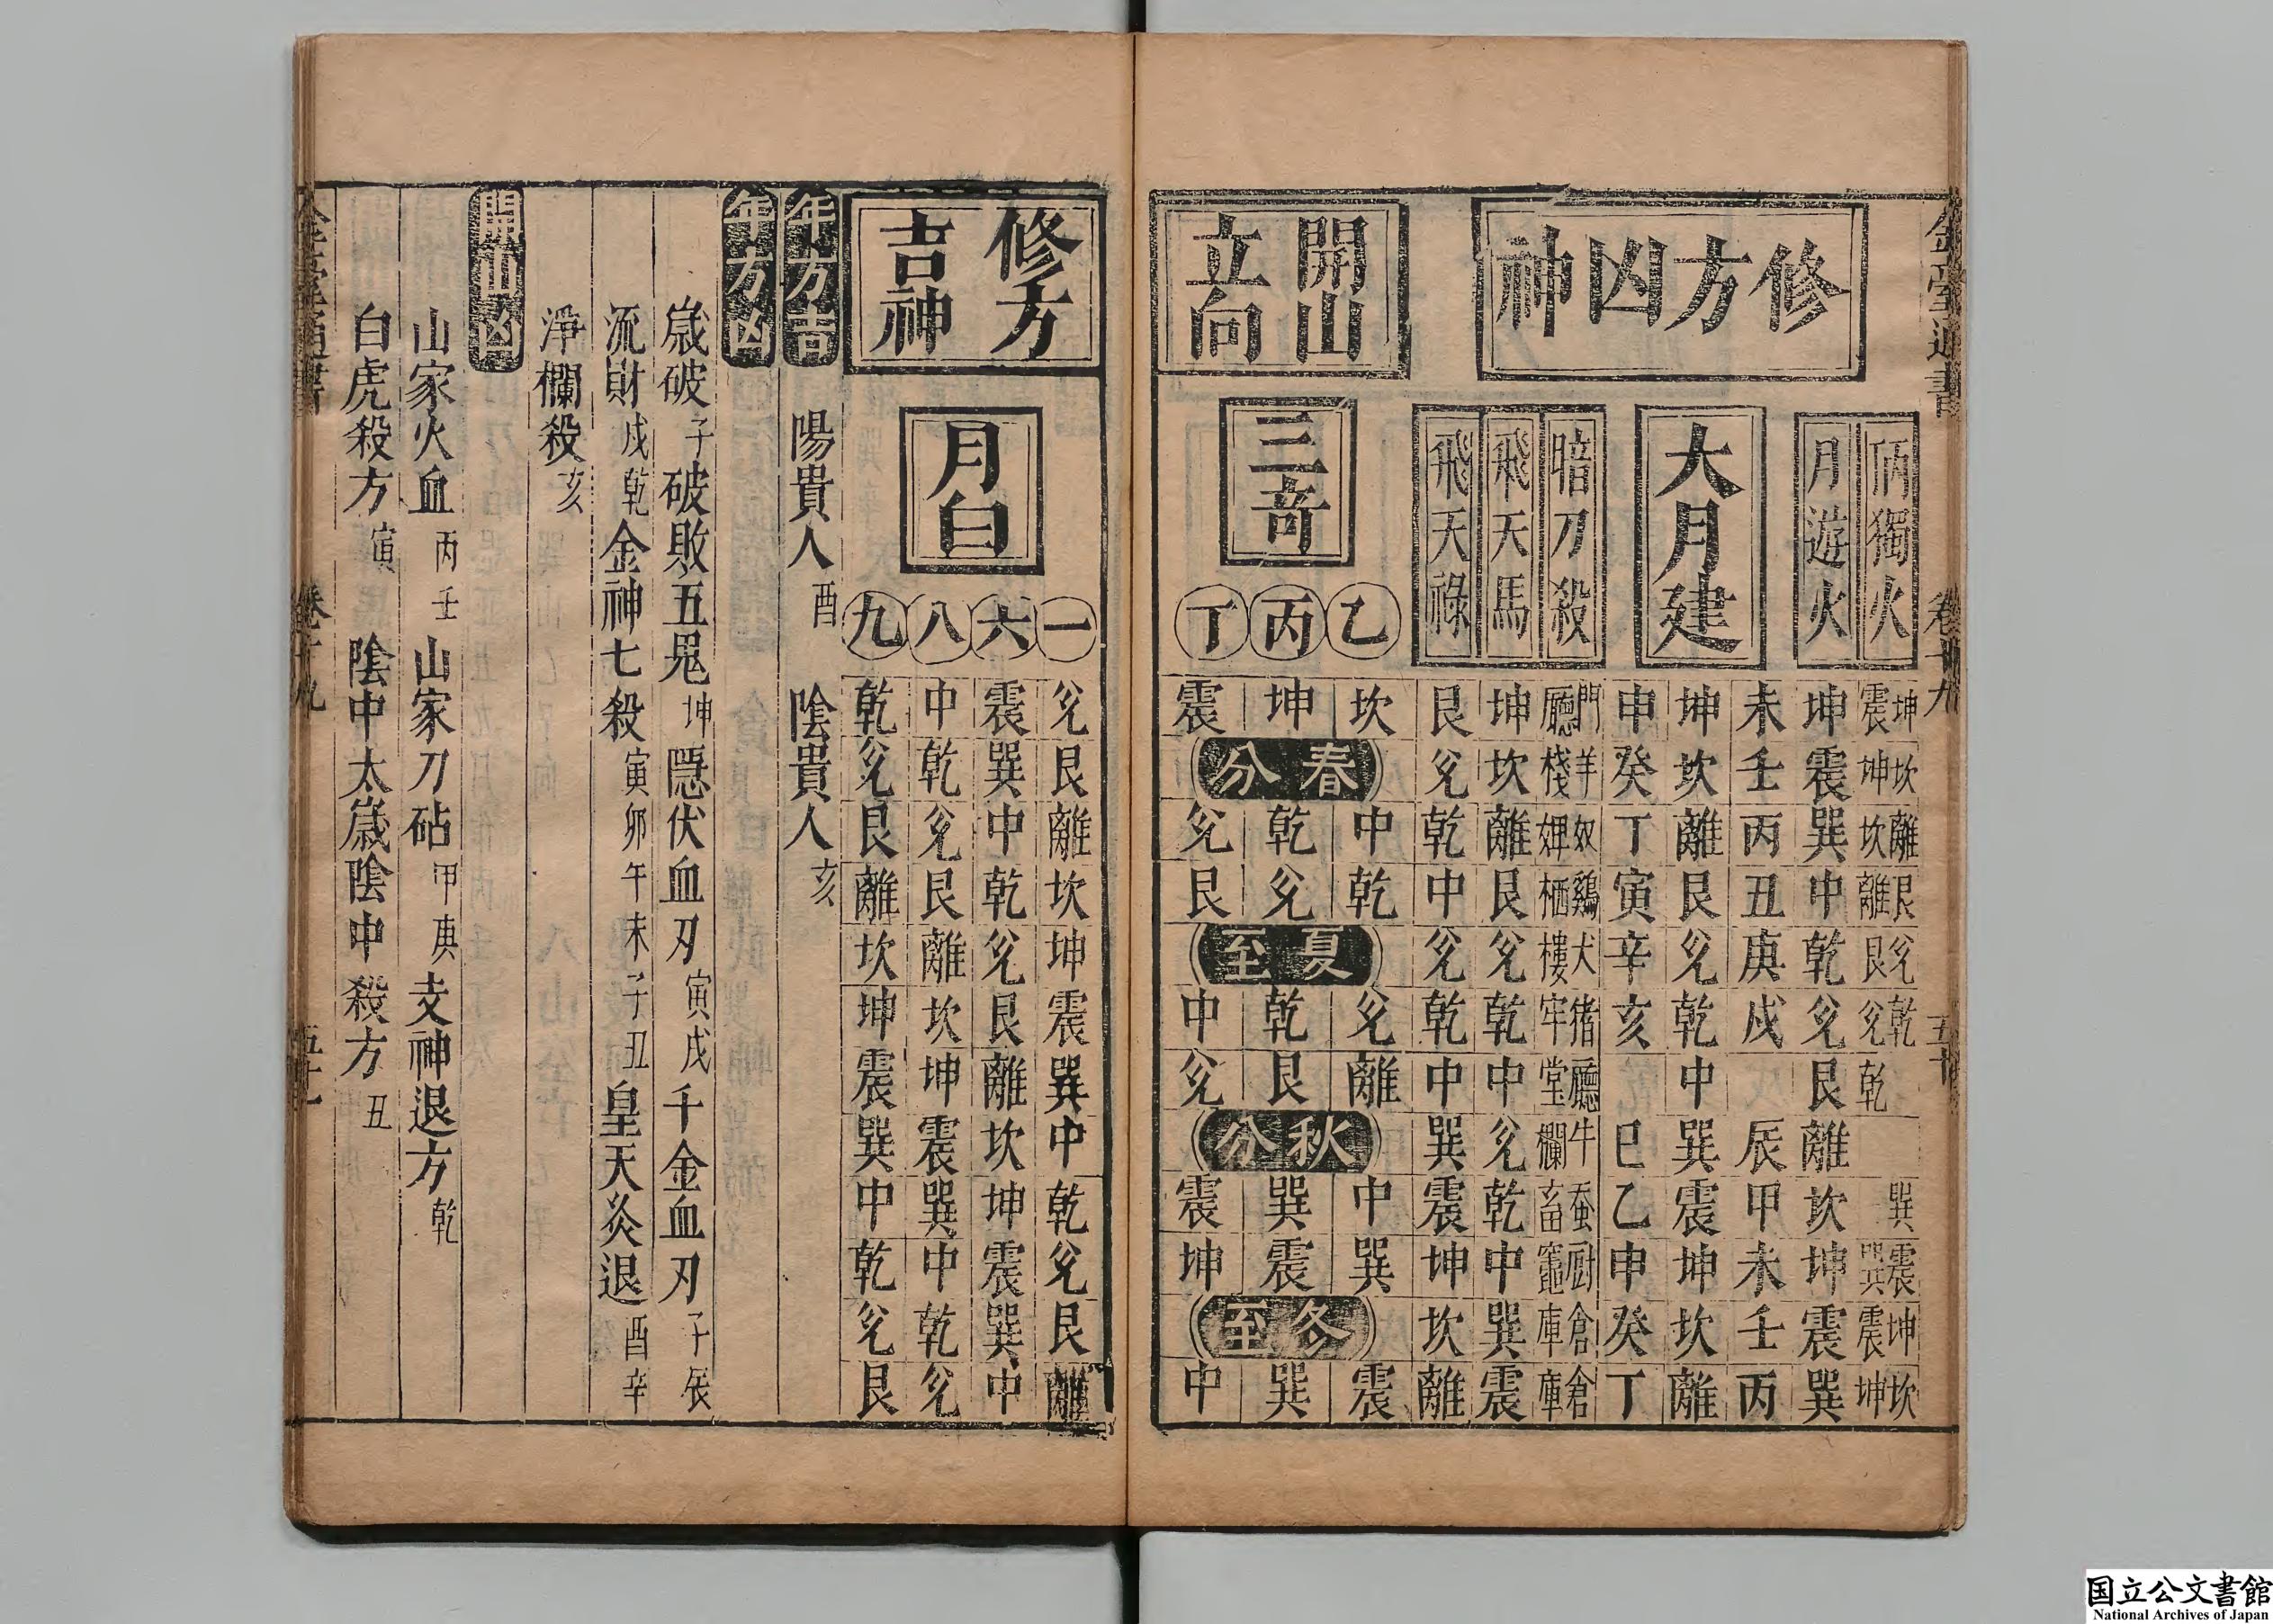 金堂通書 卷十九 五十
修方凶神
丙獨火 坤震 坎坤 離坎 艮離 兌艮 乾兌 乾 巽 震巽 坤震 坎坤
月遊火 坤 震 巽 中 乾 兌 艮 離 坎 坤 震 巽
大月建 未 壬 丙 丑 庚 戌 辰 甲 未 壬 丙
坤 坎 離 艮 兌 乾 中 巽 震 坤 坎 離
申 癸 丁 寅 辛 亥 巳 乙 申 癸 丁
暗刀殺 門廳 羊棧 奴婢 鷄栖 犬樓 猪牢 廳堂 牛欄 蚕畜 厨竈 倉庫 倉庫
飛天馬 坤 坎 離 艮 兌 乾 中 兌 乾 中 巽 震
飛天祿 艮 兌 乾 中 兌 乾 中 巽 震 坤 坎 離
開山立向
三奇
乙 丙 丁
坎 坤 震
春分
中 乾 兌
乾 兌 艮
夏至
兌 乾 中
離 艮 兌
秋分
中 巽 震
巽 震 坤
冬至
震 巽 中
修方吉神
月白
一 兌 艮 離 坎 坤 震 巽 中 乾 兌 艮 離
六 震 巽 中 乾 兌 艮 離 坎 坤 震 巽 中
八 中 乾 兌 艮 離 坎 坤 震 巽 中 乾 兌
九 乾 兌 艮 離 坎 坤 震 巽 中 乾 兌 艮
年方吉 陽貴人 酉 陰貴人 亥
年方凶
歲破 子 破敗五鬼 坤 隱伏血刃 寅戌 千金血刃 子辰
流財 戌乾 金神七殺 寅卯午未子丑 皇天炙退 酉辛
淨欄殺 亥
開山凶
山家火血 丙壬 山家刀砧 甲庚 支神退方 乾
白虎殺方 寅 陰中太歲陰中殺方 丑
卷十九
国立公文書館
National Archives of Japan